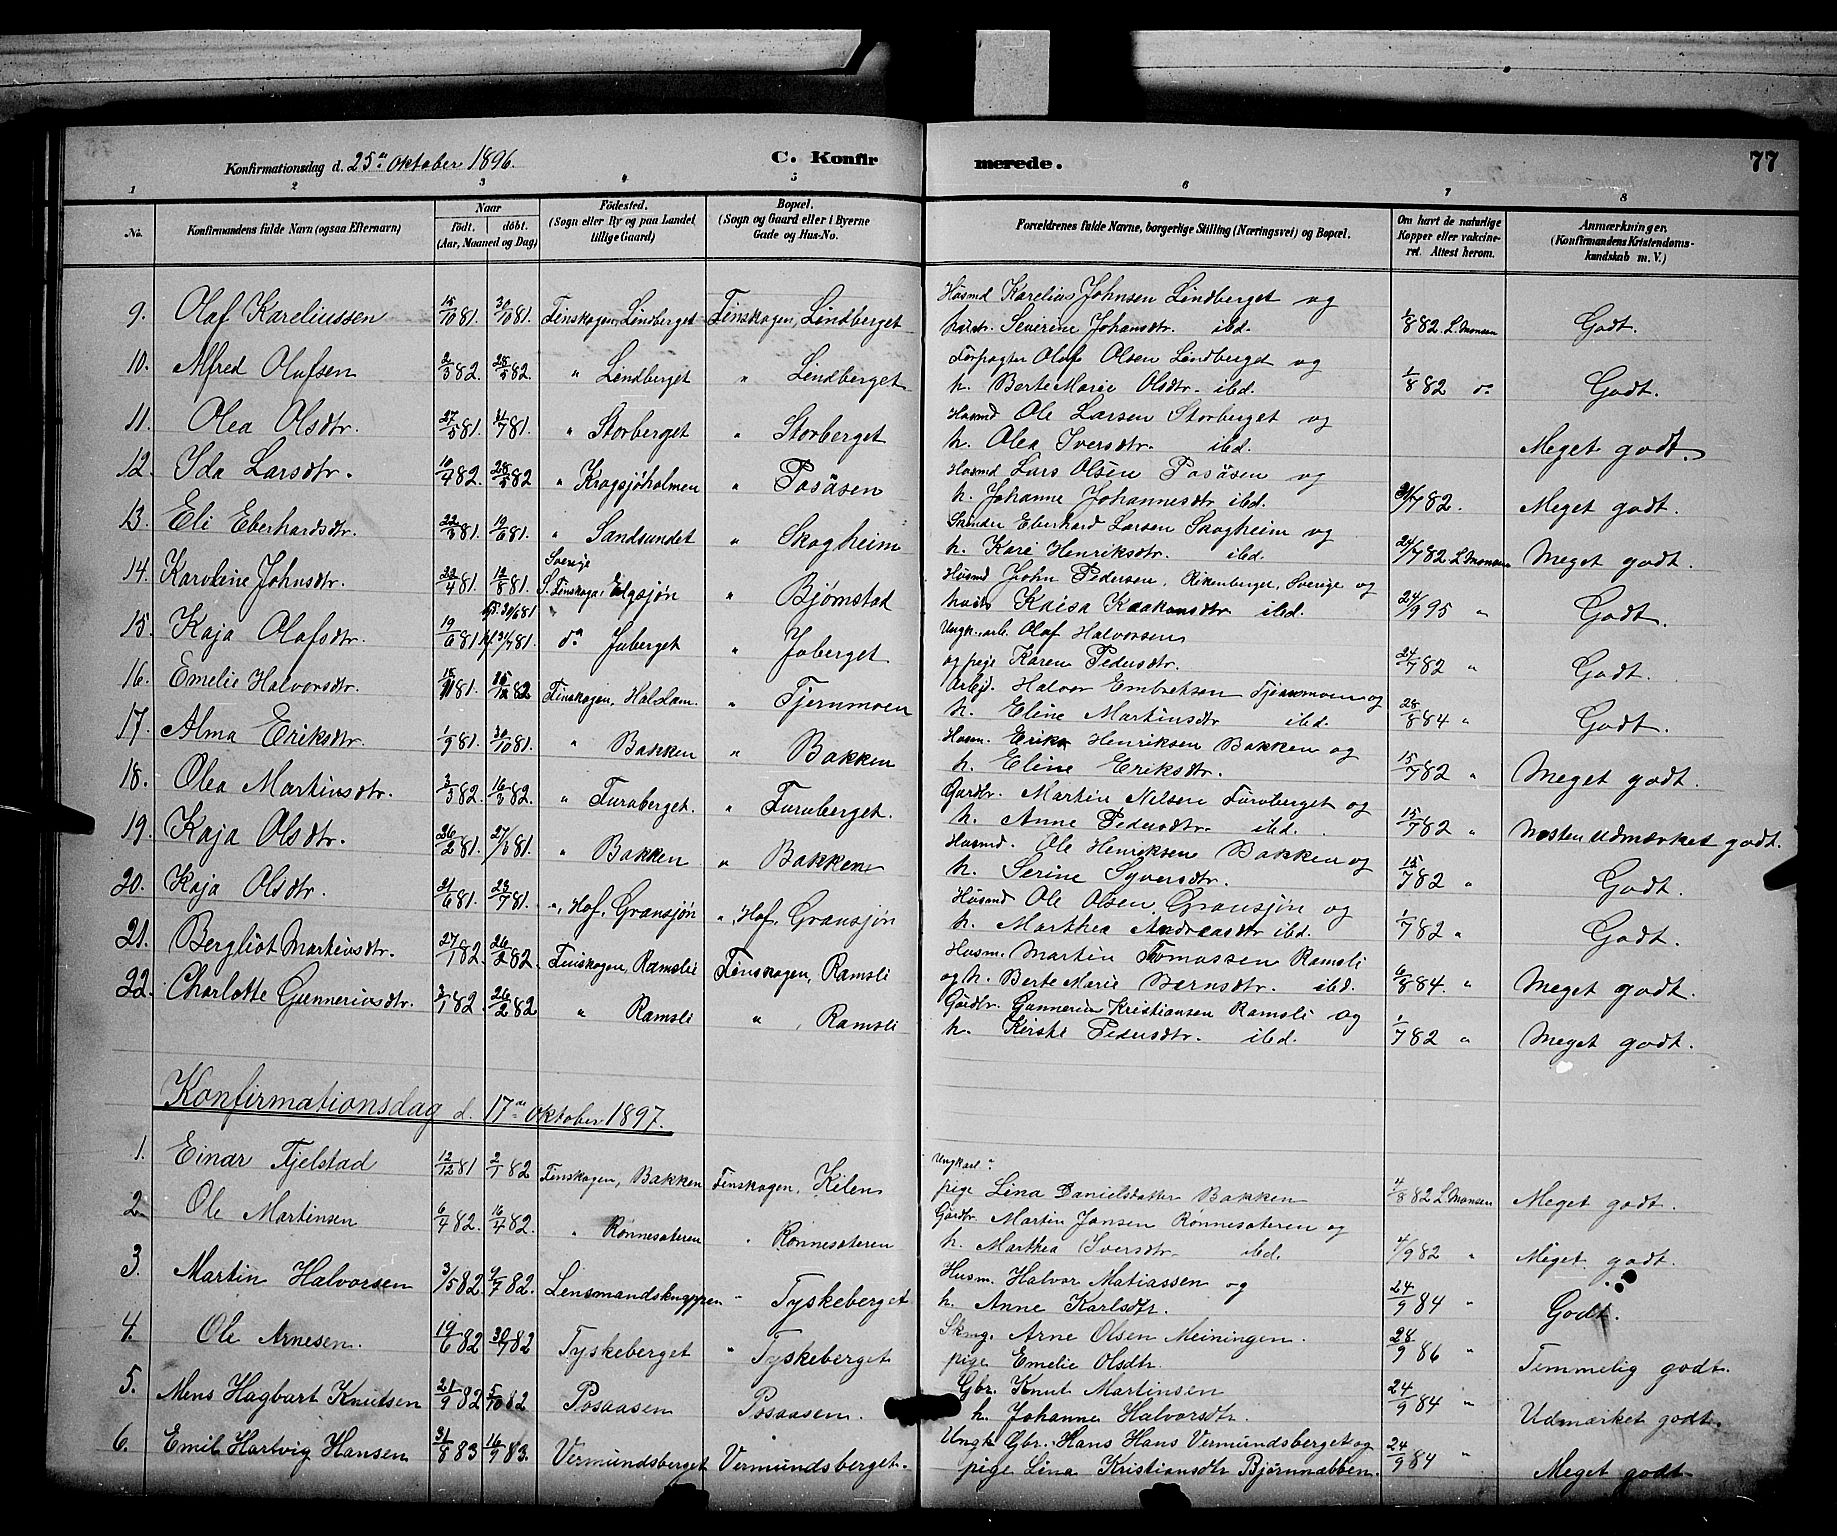 Konfirmationsdag d. 25de Oktober 1896. C. Konfirmerede. 77
1 2 3 4 5 6 7 8
No. Konfirmandens fulde Navn (ogsaa Efternavn) Naar födt. döbt. (Aar, Maaned og Dag) Födested. (Sogn eller By og paa Landet tillige Gaard) Bopæl. (Sogn og Gaard eller i Byerne Gade og Hus-No. Forældrenes fulde Navne, borgerlige Stilling (Næringsvei) og Bopæl. Om havt de naturlige Kopper eller vakcineret. Attest herom. Anmærkninger. (Konfirmandens Kristendomskundskab m. V.)
9. Olaf Kareliussen 15/10 81. 30/10 81. Finskogen, Lindberget Finskogen, Lindberget Husmd Karelius Johnsen Lindberget og
hustr. Severine Johansdtr. ibd. 1/8 82. L. Monsen Godt.
10. Alfred Olafsen 2/3 82. 28/5 82. " Lindberget " Lindberget Forpagter Olaf Olsen Lindberget og
h. Berte Marie Olsdtr. ibd. 1/8 82 do Godt.
11. Olea Olsdtr. 27/5 81. 81. " Storberget " Storberget Husmd Ole Larsen Storberget og
h. Olea Iversdtr. ibd. Meget godt.
12. Ida Larsdtr. 10/4 82. 28/5 82 " Krogsjøholmen " Posåsen Husmd Lars Olsen Posåsen og
h. Johanne Johannesdtr ibd. 82. Meget godt.
13. Eli Eberhardsdtr. 81. 19/6 81. " Sandsundet " Skogheim Eberhard Larsen Skogheim og
h. Kari Henriksdtr. ibd. 24/7 82 L. Monsen Meget godt.
14. Karoline Johnsdtr. 81. 81. Sverige S. Finskoga, Elgsjön " Bjørnstad Husmd John Pedersen, Rikenberget, Sverige og
Kaisa ibd. 24/9 95 " Godt.
15. Kaja Olafsdtr. 19/6 81 81. do Juberget " Juberget Ungk. arb. Olaf Halvorsen
og pige Karen Pedersdtr. 24/7 82 " Godt.
16. Emelie Halvorsdtr. 15/11 81. 82 Finskogen, Halslam. " Tjernmoen Arbjd. Halvor Embretsen Tjernmoen og
h. Eline Martinsdtr ibd. 28/8 84 " Godt.
17. Alma Eriksdtr. 1/9 81. 30/10 81. " Bakken " Bakken Husm. Erik Henriksen Bakken og
h. Eline Eriksdtr. 15/7 82 " Meget godt.
18. Olea Martinsdtr. 3/3 82. 16/3 82. " Furuberget. " Furuberget. Gardbr. Martin Nilsen Furuberget og
h. Anne Pedersdtr. ibd. 15/7 82 " Næsten udmærket godt.
19. Kaja Olsdtr. 26/2 81. 81. " Bakken " Bakken Husmd. Ole Henriksen Bakken og
h. Serine Syversdtr. 15/7 82 " Godt.
20. Kaja Olsdtr. 21/6 81. 23/7 81. ", Hof, Gransjøn ", Hof, Gransjøn Husmd Ole Olsen Gransjøn og
h. Marthea Andreasdtr ibd. 1/7 82 " Godt.
21. Bergliot Martinsdtr. 27/1 82. 26/2 82. Finskogen, Ramsli Finskogen, Ramsli Husm. Martin Tomassen Ramsli
og h. Berte Marie Bernsdtr. ibd. 6/8 84. " Meget godt.
22. Charlotte Gunneriusdtr. 3/1 82. 26/2 82 " Ramsli " Ramsli Gårdbr. Gunnerius Kristiansen Ramsli og
h. Kirsti Pedersdtr. ibd. 1/7 82 " Meget godt.
Konfirmationsdag d. 17de Oktober 1897.
1. Einar Fjelstad 12/12 81 2/7 82 Finskogen, Bakken Finskogen, Kilen Ungkarl "
pige Lina Danielsdatter Bakken 4/8 82 L. Monsen Meget godt.
2. Ole Martinsen 6/4 82. 16/4 82. " Rønnesæteren " Rønnesæteren Gårdbr. Martin Jansen Rønnesæteren og
h. Marthea Iversdtr. ibd. 4/9 82 " Meget godt.
3. Martin Halvorsen 3/5 82 9/7 82. Lensmandsknappen " Tyskeberget Husm. Halvor Matiassen og
h. Anne Karlsdtr. 24/9 84 " Godt.
4. Ole Arnesen. 19/6 82 30/7 82 Tyskeberget " Tyskeberget Skmg. Arne Olsen Meiningen.
pige Emelie Olsdtr. 28/9 86 " Temmelig godt.
5. Mens Hagbart Knutsen 21/9 82 5/10 82 Posaasen Posaasen. Gbr. Knut Martinsen
h. Johanne Halvorsdtr. 24/9 84 " Udmærket godt.
6. Emil Hartvig Hansen 31/8 83 16/9 83. Vermundsberget Vermundsberget. Ungk. Gbr. Hans Hans Vermundsberget og
pige Lina Kristiansdtr Bjørnnabben. 24/9 84 " Meget godt